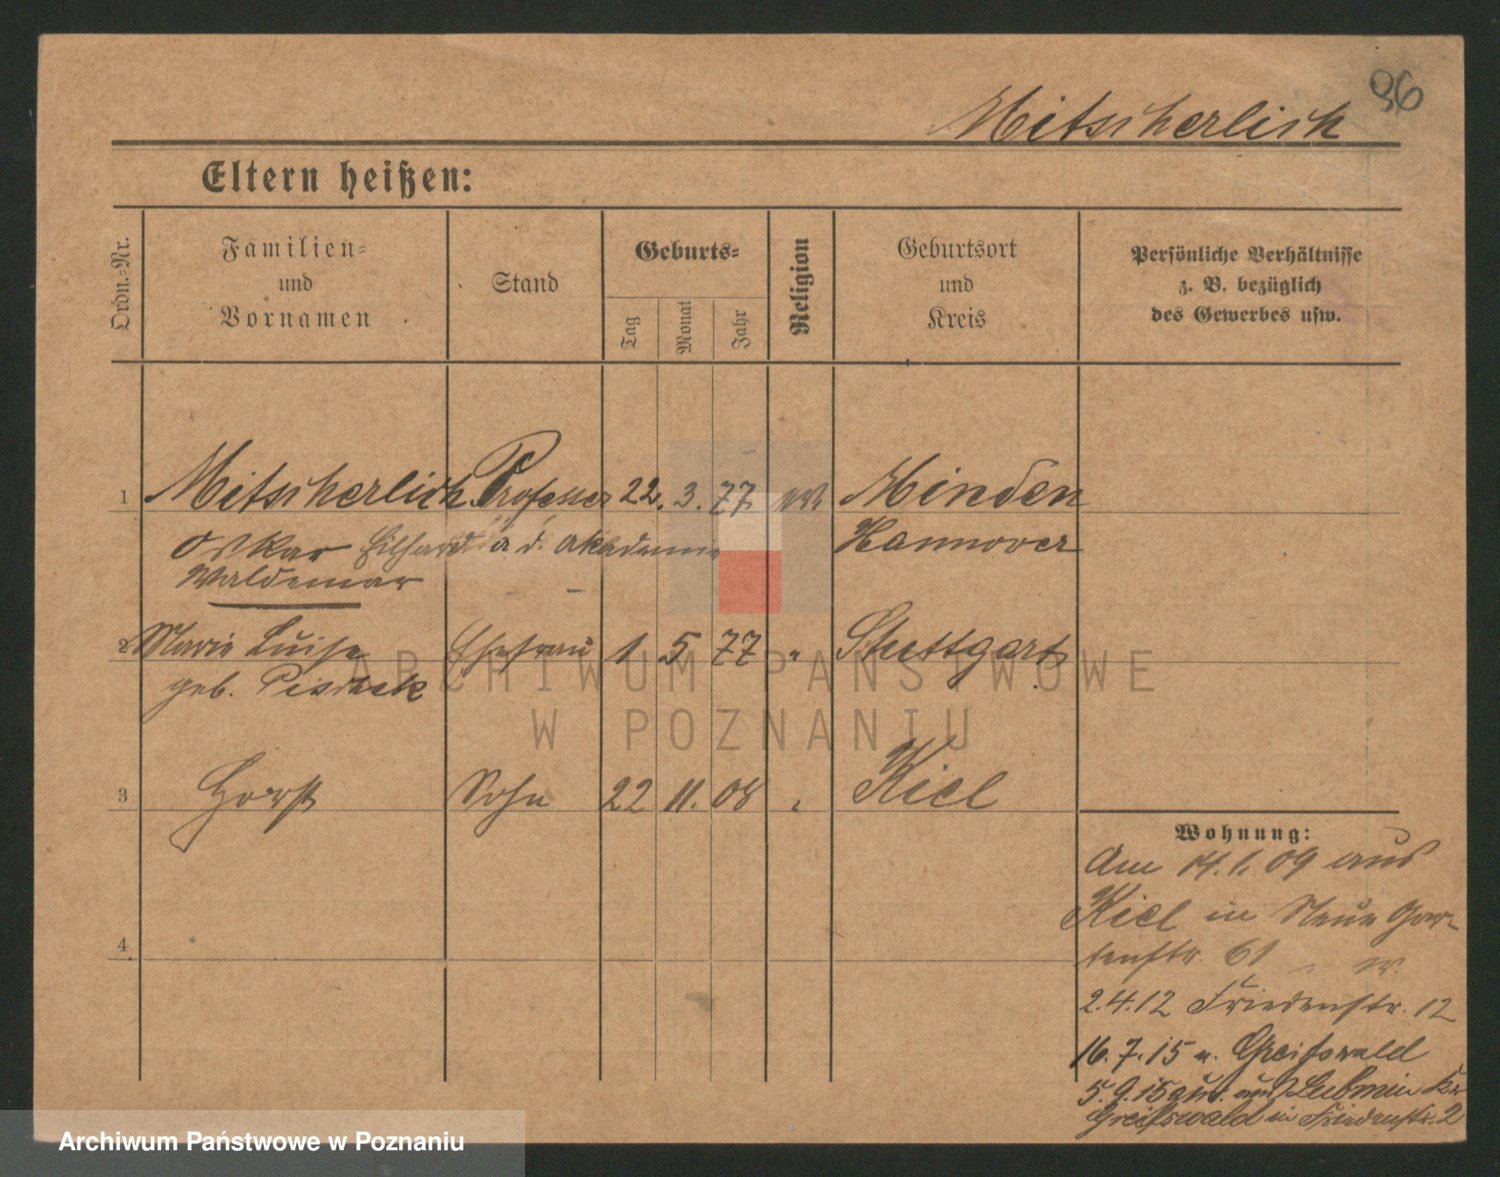 96
Mitscherlich
Eltern heißen:
Ordn.-Nr.
Familien-
und
Vornamen
Stand
Geburts-
Tag
Monat
Jahr
Religion
Geburtsort
und
Kreis
Persönliche Verhältnisse
z. B. bezüglich
des Gewerbes usw.
1 Mitscherlich Professor 22. 3. 77 Minden
Oskar Eilhard a. d. Akademie Hannover
Waldemar
2 Marie Luise Ehefrau 1 5 77 " Stuttgart
geb.
3 Horst Sohn 22 11. 08 " Kiel
4
Wohnung:
Am 14.1.09 aus
Kiel in Neue Gar-
tenstr. 61
2.4.12 Friedenstr. 12
16.7.15 n. Greifswald
5.9.15 aus Lubmin Kr.
Greifswald in Friedenstr. 2
ARCHIWUM PAŃSTWOWE
W POZNANIU
Archiwum Państwowe w Poznaniu